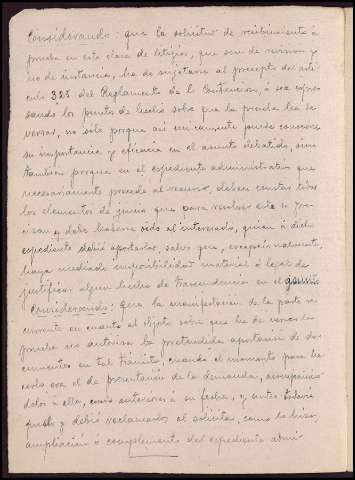 Considerando: que la solicitud de recibimiento á
prueba en esta clase de litigios, que son de revision y
no de instancia, ha de sujetarse al precepto del artí
culo 325 del Reglamento de lo Contencioso, ó sea expre
sando los puntos de hecho sobre que la prueba ha de
versar, no sólo porque asi unicamente puede conocerse
su importancia y eficacia en el asunto debatido, sino
tambien porque en el expediente administrativo que
necesariamente precede al recurso, deben constar todos
los elementos de juicio que para resolver este se pre
cisan y debe haberse oido al interesado, quien á dicho
expediente debió aportarlos, salvo que, excepcionalmente,
haya mediado imposibilidad material ó legal de
justificar algun hecho de trascendencia en el asunto
Considerando: Que la manifestación de la parte re
currente en cuanto al objeto sobre que ha de versar la
prueba no autoriza la pretendida aportación de do
cumentos en tal trámite, cuando el momento para ha
cerlo era el de presentación de la demanda, acompañán
dolos á ella, como anteriores á su fecha, y antes
pudo y debió reclamarlos al solicitar, como lo hizo,
ampliación ó complemento del expediente admi-